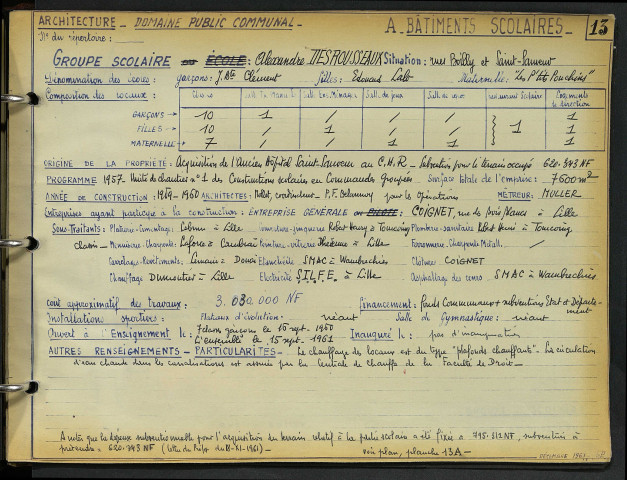 ARCHITECTURE - DOMAINE PUBLIC COMMUNAL - A - BÂTIMENTS SCOLAIRES - 13
N° du répertoire :
GROUPE SCOLAIRE ou ÉCOLE : Alexandre DESROUSSEAUX Situation : rues Boilly et Saint-Sauveur
Dénomination des écoles : garçons : J. Bte Clément filles : Edouard Lalo Maternelle : "Les P'tits Pouchins"
Composition des locaux : Classes Salle Tr. Manuel Sall. Ens. Ménager Salle de jeux Salle de repos Restaurant Scolaire Logements de direction
GARÇONS → 10 1 / / / 1
FILLES → 10 / / / / 1 1
MATERNELLE → 7 / / 1 1 1
ORIGINE DE LA PROPRIÉTÉ : Acquisition de l'Ancien Hôpital Saint-Sauveur au C.H.R. - Subvention pour le terrain occupé 620.343 NF
PROGRAMME 1957 - Unité de chantier n° 1 des Constructions scolaires en Commandes Groupées Surface totale de l'emprise : 7600 m²
ANNÉE DE CONSTRUCTION : 1959-1960 ARCHITECTES : coordinateur P.F. Delannoy pour les opérations MÉTREUR : MULLER
Entreprises ayant participé à la construction : ENTREPRISE GÉNÉRALE ou PILOTE : COIGNET, à Lille
Sous-Traitants : Plâtrerie - à Lille à Tourcoing Plomberie-sanitaire à Tourcoing
Menuiserie-Charpente : à Cambrai Peinture-vitrerie à Lille Ferronnerie-Charpente Métall. /
Carrelages-Revêtements : à Douai Etanchéité SMAC à Wambrechies Clôtures COIGNET
Chauffage Dumoutier à Lille Electricité S.I.L.F.E. à Lille Asphaltage des cours SMAC à Wambrechies
Coût approximatif des travaux : 3.030.000 NF Financement : fonds Communaux + subventions Etat et Département
Installations sportives : Plateaux d'évolution - néant Salle de Gymnastique : néant
Ouvert à l'Enseignement le : 7 classes garçons le 15 sept. 1960 Inauguré le : pas d'inauguration
L'ensemble le 15 sept. 1961
AUTRES RENSEIGNEMENTS - PARTICULARITÉS - Le chauffage des locaux est du type "plafonds chauffants" - La circulation
d'eau chaude dans les canalisations est assurée par la Centrale de chauffe de la Faculté de Droit -
A noter que la dépense subventionnable pour l'acquisition du terrain relatif à la partie scolaire a été fixée à 795.312 NF, subvention à
prétendre : 620.343 NF (lettre du Préf. du 1961) - voir plan, planche 13A -